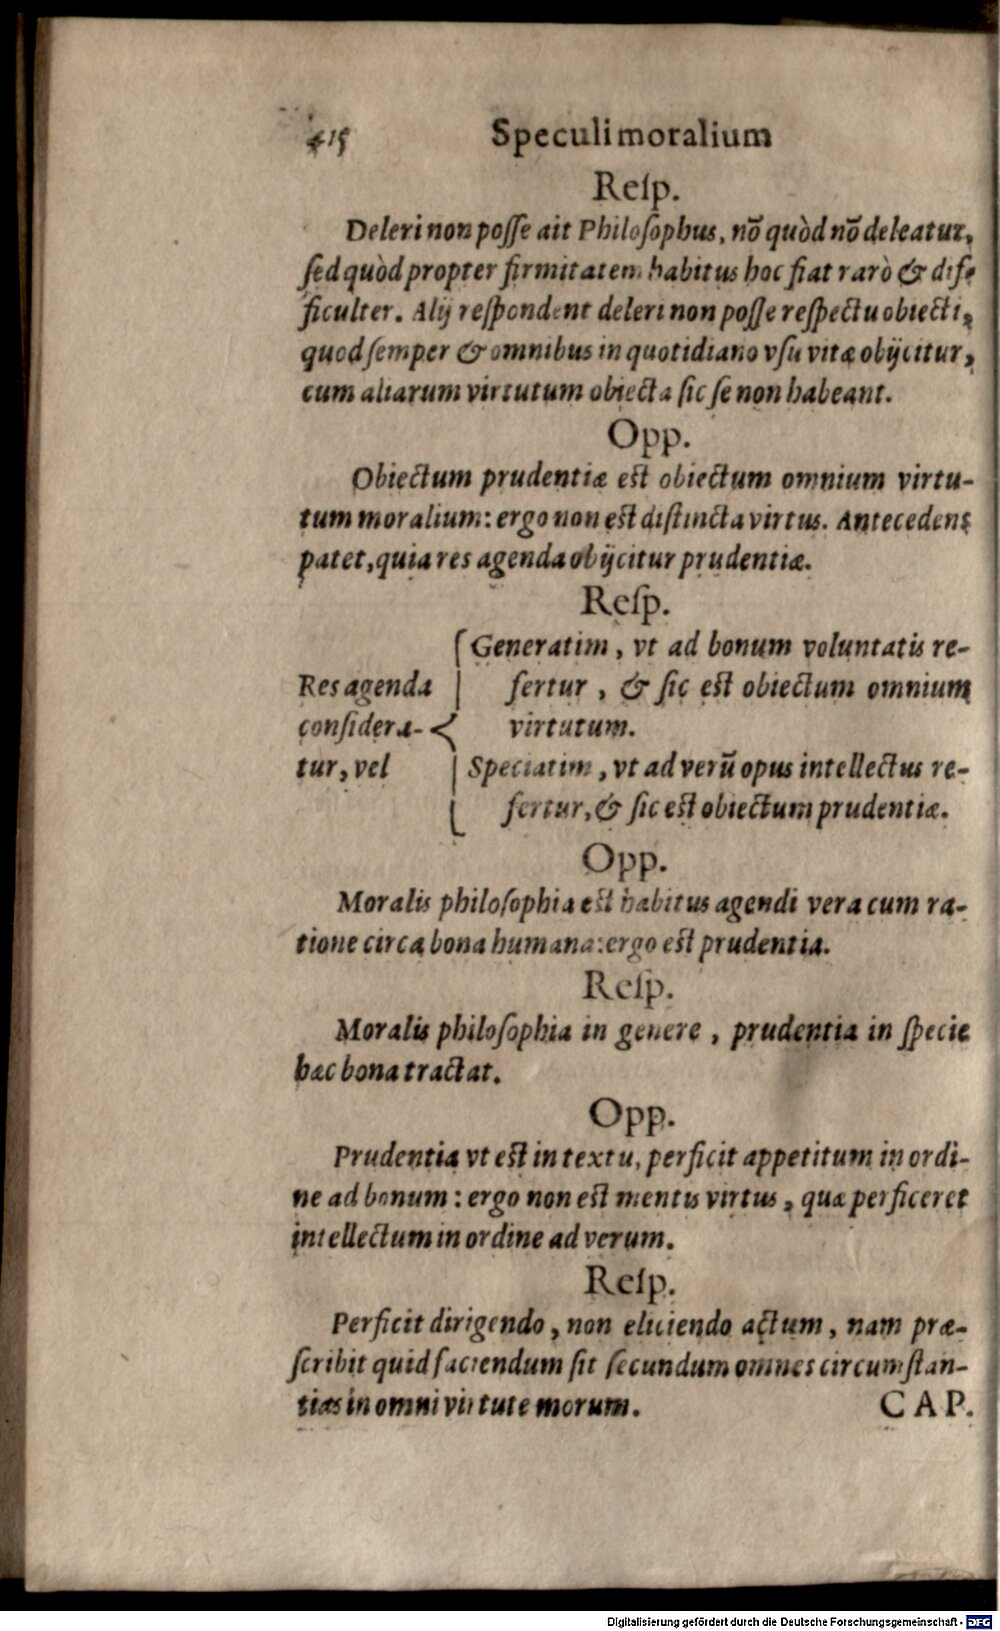 415 Speculi moralium
Resp.
Deleri non posse ait Philosophus, nō quòd nō deleatur,
sed quòd propter firmitatem habitus hoc fiat rarò & dif-
ficulter. Alij respondent deleri non posse respectu obiecti,
quod semper & omnibus in quotidiano vsu vitæ obijcitur,
cum aliarum virtutum obiecta sic se non habeant.
Opp.
Obiectum prudentiæ est obiectum omnium virtu-
tum moralium: ergo non est distincta virtus. Antecedens
patet, quia res agenda obijcitur prudentiæ.
Resp.
Res agenda
considera-
tur, vel
Generatim, vt ad bonum voluntatis re-
fertur, & sic est obiectum omnium
virtutum.
Speciatim, vt ad verū opus intellectus re-
fertur, & sic est obiectum prudentiæ.
Opp.
Moralis philosophia est habitus agendi vera cum ra-
tione circa bona humana: ergo est prudentia.
Resp.
Moralis philosophia in genere, prudentia in specie
hæc bona tractat.
Opp.
Prudentia vt est in textu, perficit appetitum in ordi-
ne ad bonum: ergo non est mentis virtus, quæ perficeret
intellectum in ordine ad verum.
Resp.
Perficit dirigendo, non eliciendo actum, nam præ-
scribit quid faciendum sit secundum omnes circumstan-
tias in omni virtute morum. CAP.
Digitalisierung gefördert durch die Deutsche Forschungsgemeinschaft - DFG